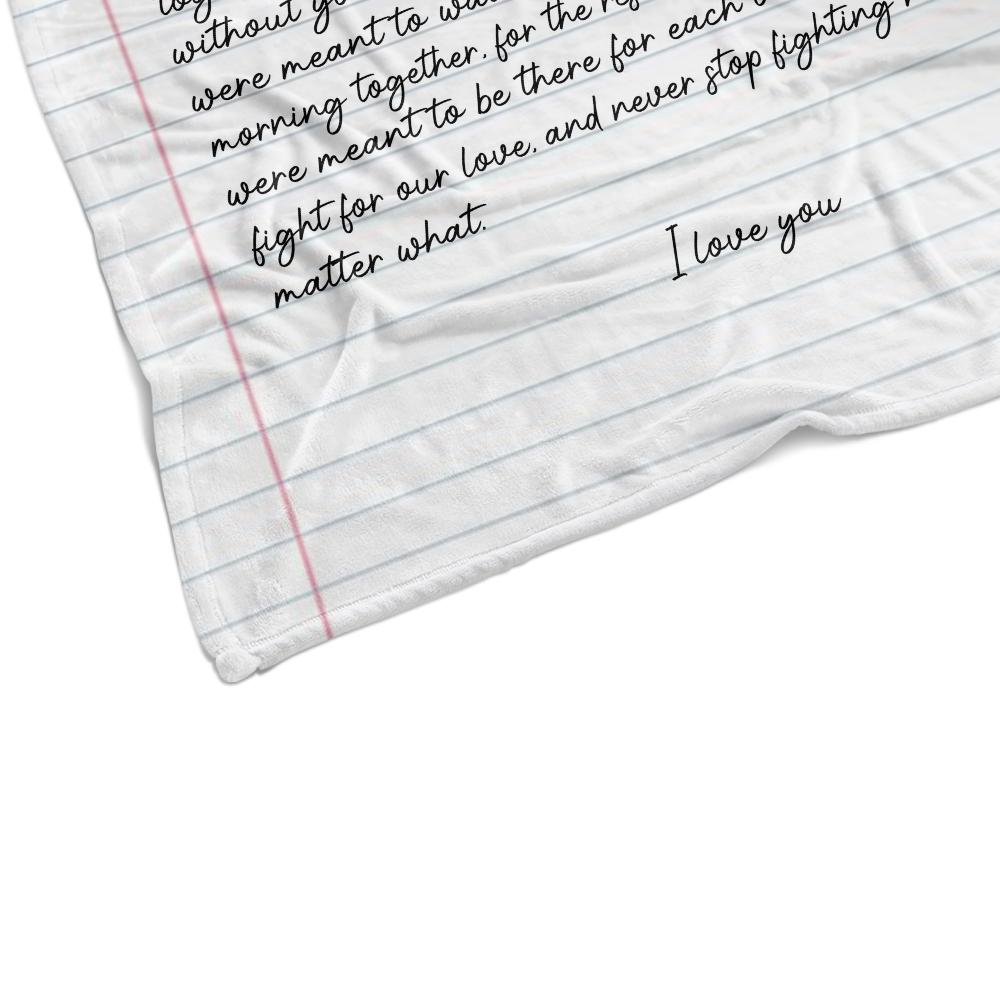 without
were meant to
morning together, for the
were meant to be there for each
fight for our love, and never stop fighting
matter what.
I love you